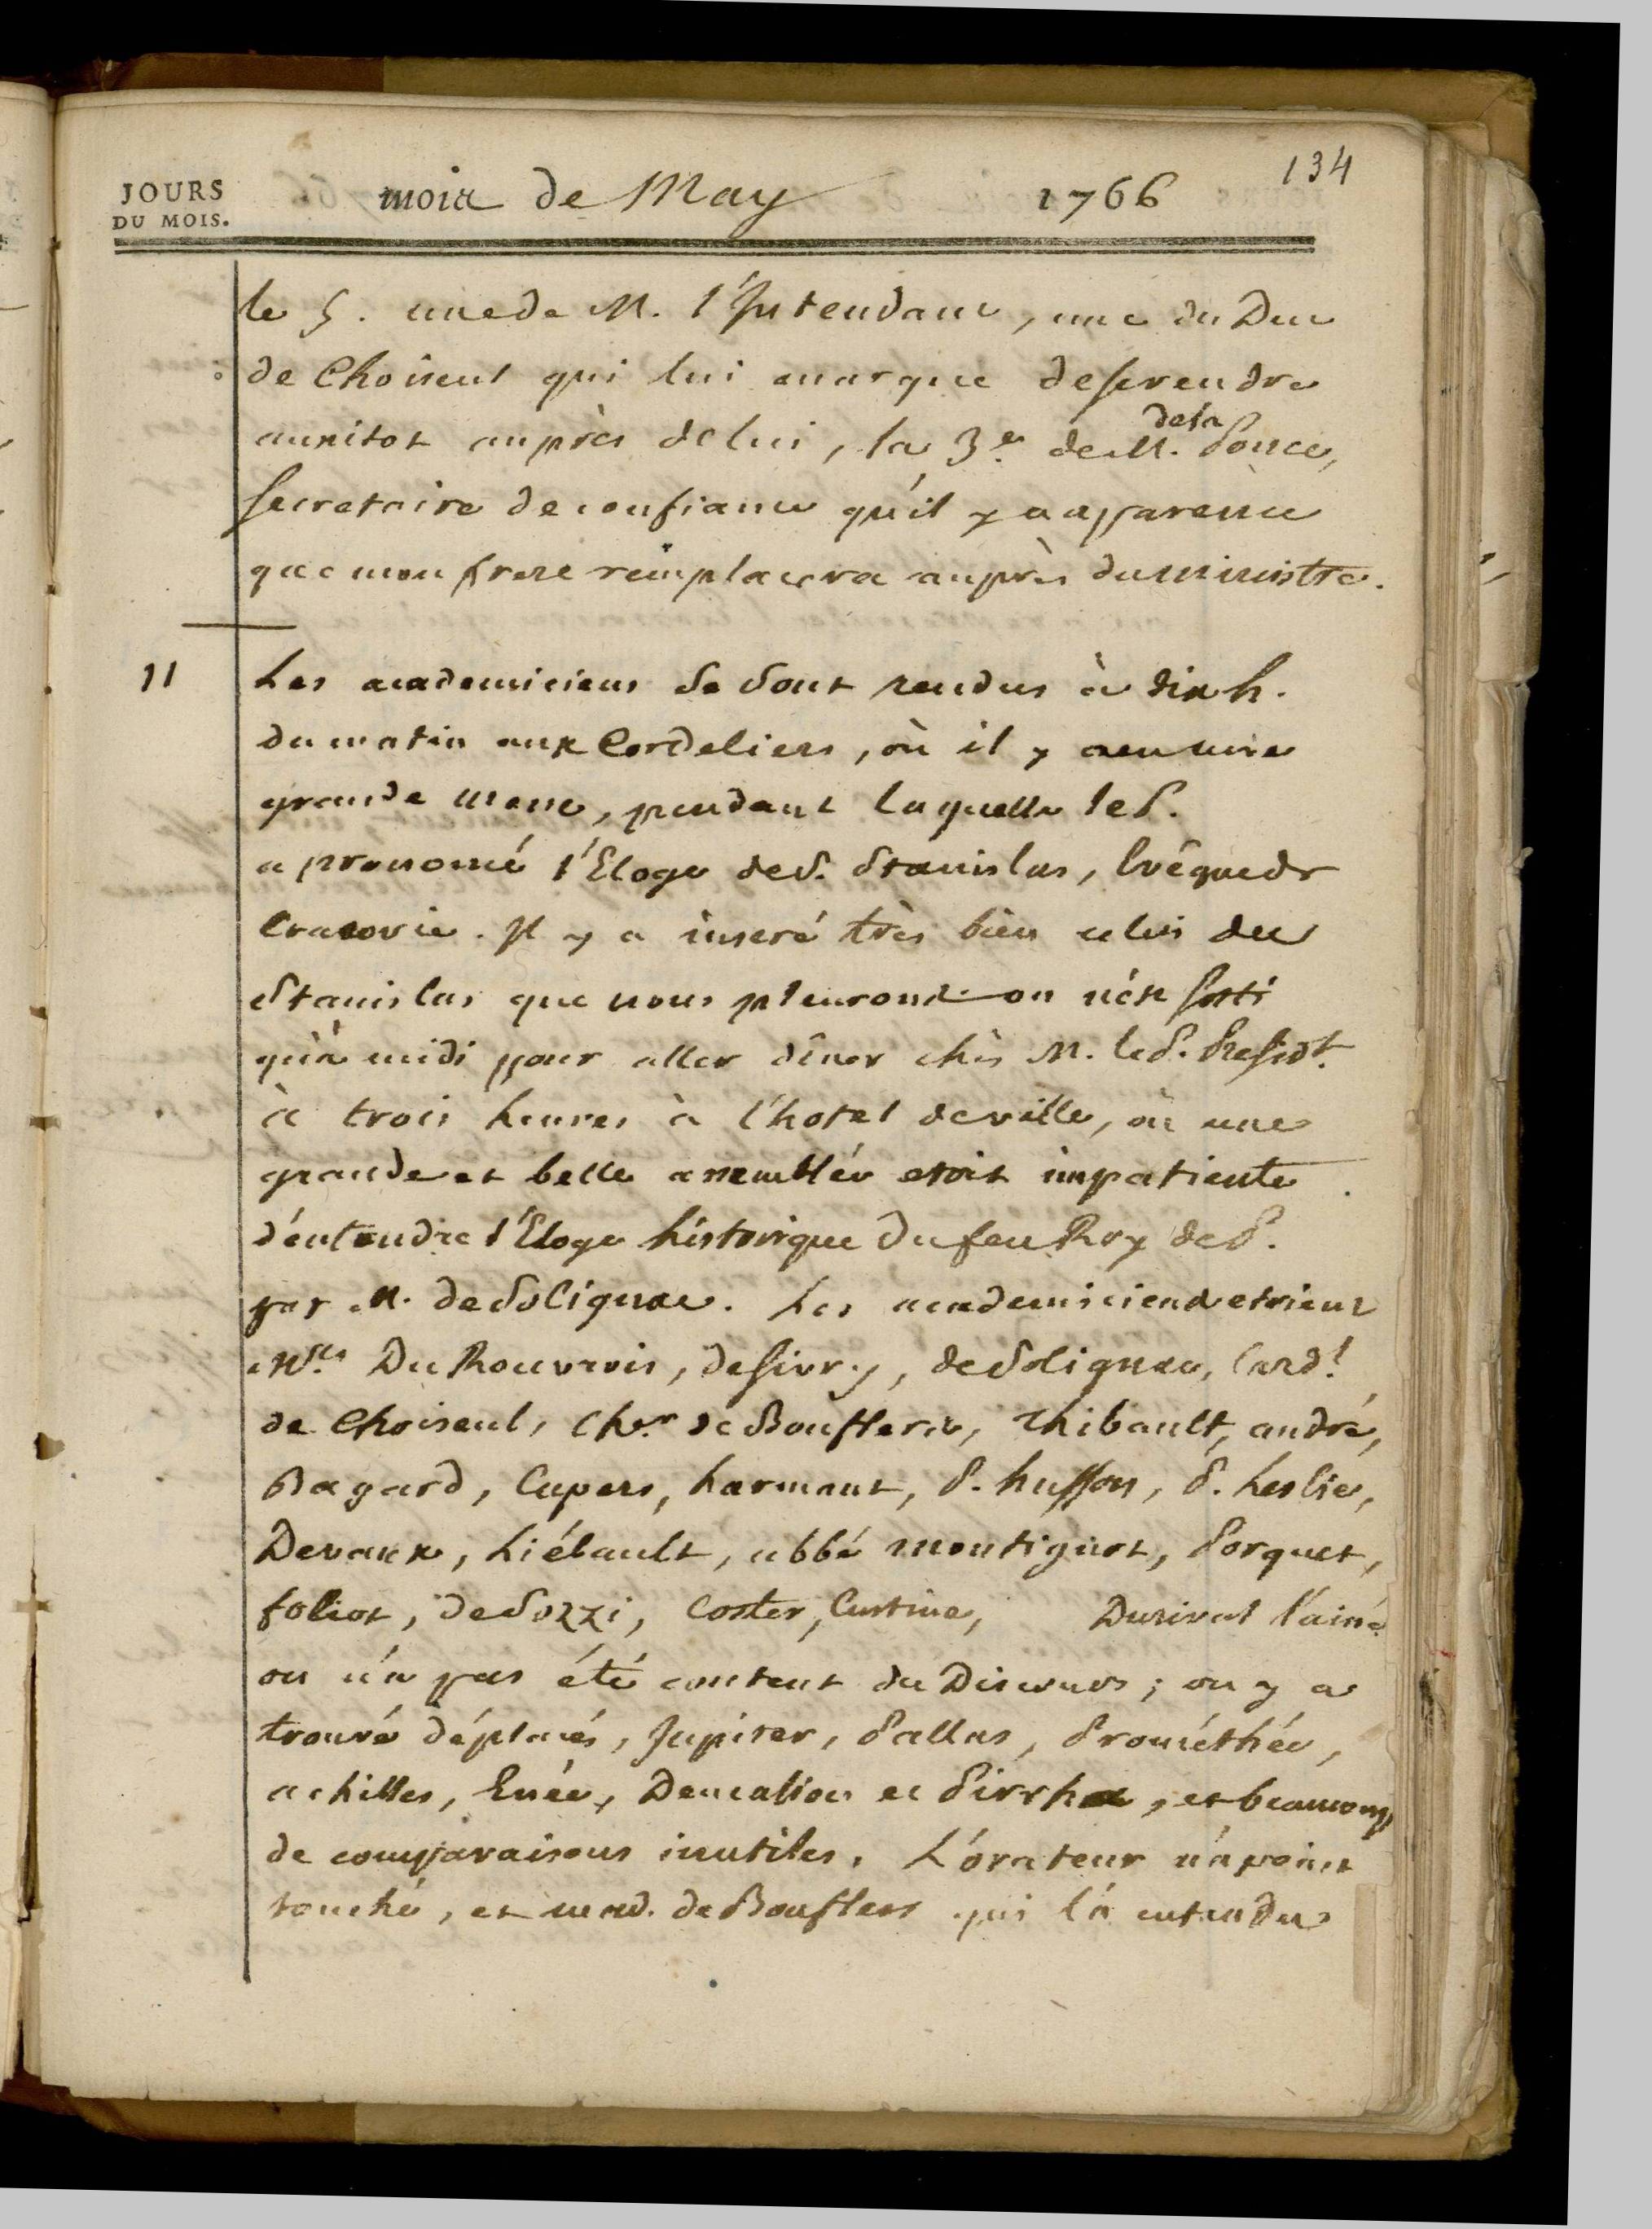 134
JOURS
DU MOIS.
mois de May 1766
le 5. une de M. l'Intendant, une du Duc
de Choiseul qui lui marque de se rendre
aussitot auprès de lui, la 3e. de M. dela Ponce,
secretaire de confiance qu'il y a apparence
que mon frere remplacera auprès du ministre.
11
Les academiciens se sont rendus à dix h.
du matin aux Cordeliers, où il y a eu une
grande messe, pendant laquelle le P.
a prononcé l'Eloge de S. Stanislas, Evêque de
Cracovie. Il y a inseré très bien celui du
Stanislas que nous pleurons. on n'est sorti
qu'à midi pour aller diner chès M. le P. Presidt.
à trois heures à l'hotel de ville, où une
grande et belle assemblée etoit impatiente
d'entendre l'Eloge historique du feu Roy de P.
par M. de Solignac. Les academiciens etoient
Mrs. Du Rouvrois, de Sivry, de Solignac, Cardl.
de Choiseul, Cher. de Bouflers, Thibault, andré,
Bagard, Cupers, harmant, P. husson, P. Leslie,
Devaux, Liébault, abbé montignot, Porquet,
foliot, de Sozzi, Coster, Custine, Durival l'ainé
on n'a pas été content du Discours ; on y a
trouvé déplacés, Jupiter, Pallas, Prométhée,
achilles, Enée, Deucalion et Pirrha, et beaucoup
de comparaisons inutiles. L'orateur n'a point
touché, et mad. de Bouflers qui l'a entendu